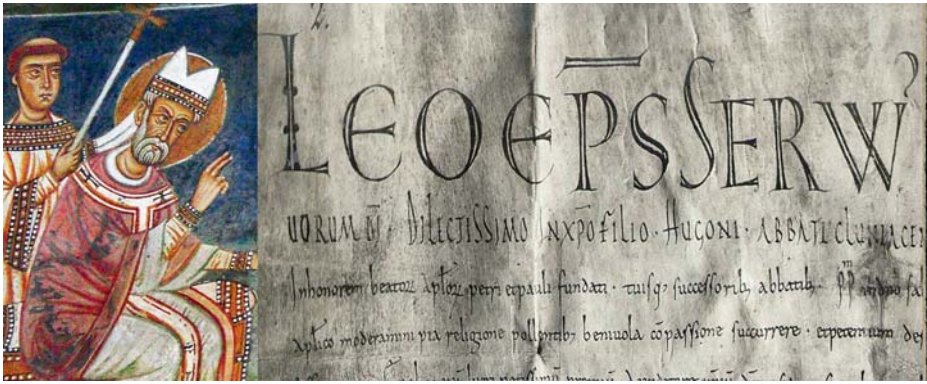 2.
LEO EP̄S SERVV'
UORUM DĪ DILECTISSIMO INXPO FILIO · HUGONI · ABBATI CLUNIACEN
Inhonorem beatoꝝ aplōꝝ petri et pauli fundati · tuisq; successorib; abbatib;
Aplico moderamini pia religione pollentib; beniuola cōpassione succurrere · et petentium